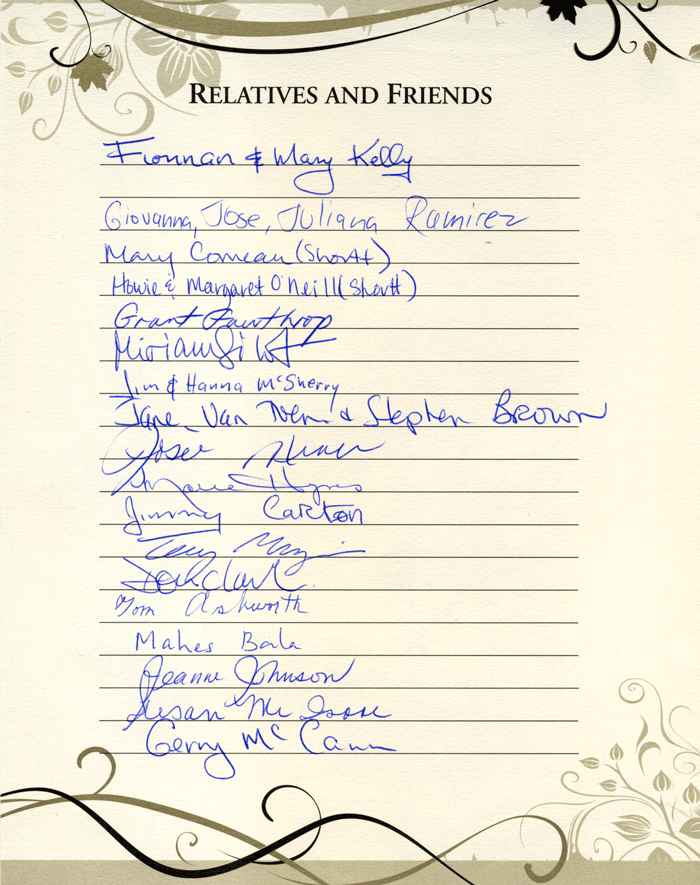 RELATIVES AND FRIENDS
Fionnan & Mary Kelly
Giovanna, Jose, Juliana Ramirez
Mary Comeau (Shortt)
Howie & Margaret O'Neill (Shortt)
Grant Fawthrop
Miriam
Jim & Hanna McSherry
Jane Van & Stephen Brown
Jimmy Carlton
Tony
Jack Clark
Tom Ashworth
Mahes Bala
Jeanne Johnson
Susan Mc Isaac
Gerry Mc Cann